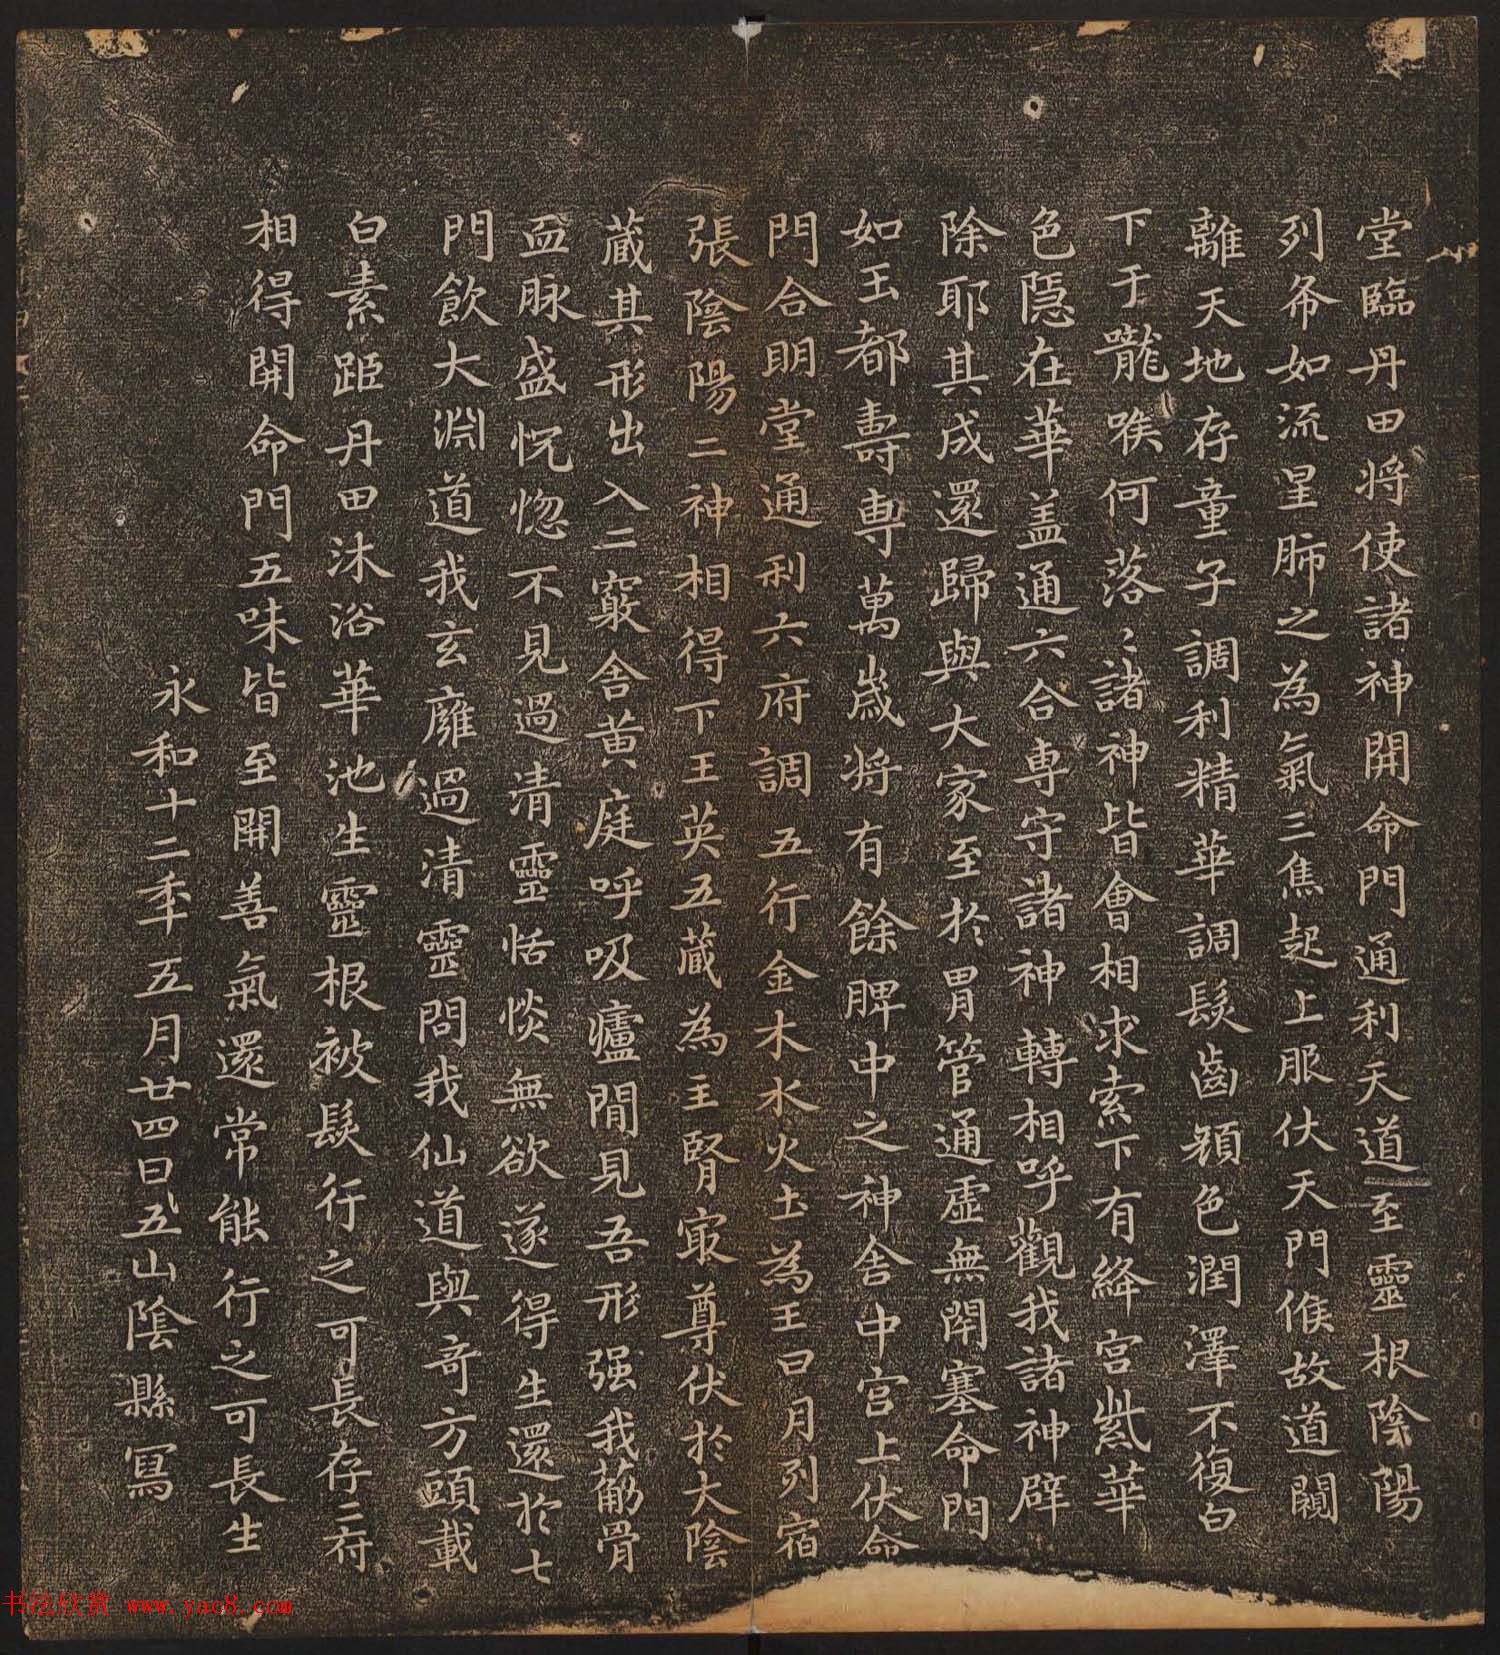 堂臨丹田将使諸神開命門通利天道至靈根陰陽
列布如流星肺之為氣三焦起上服伏天門候故道闚
離天地存童子調利精華調髮齒顔色潤澤不復白
下于嚨喉何落〻諸神皆會相求索下有絳宮紫華
色隱在華盖通六合専守諸神轉相呼觀我諸神辟
除耶其成還歸與大家至於胃管通虚無閇塞命門
如玉都壽専萬歲将有餘脾中之神舍中宮上伏命
門合明堂通利六府調五行金木水火土為王日月列宿
張陰陽二神相得下玉英五藏為主腎冣尊伏於大陰
藏其形出入二竅舍黄庭呼吸廬間見吾形强我筋骨
血脉盛怳惚不見過清靈恬惔無欲遂得生還於七
門飲大淵道我玄廱過清靈問我仙道與奇方頭載
白素距丹田沐浴華池生靈根被髮行之可長存二府
相得開命門五味皆至開善氣還常能行之可長生
永和十二年五月廿四日五山陰縣寫
书法欣赏 www.yac8.com